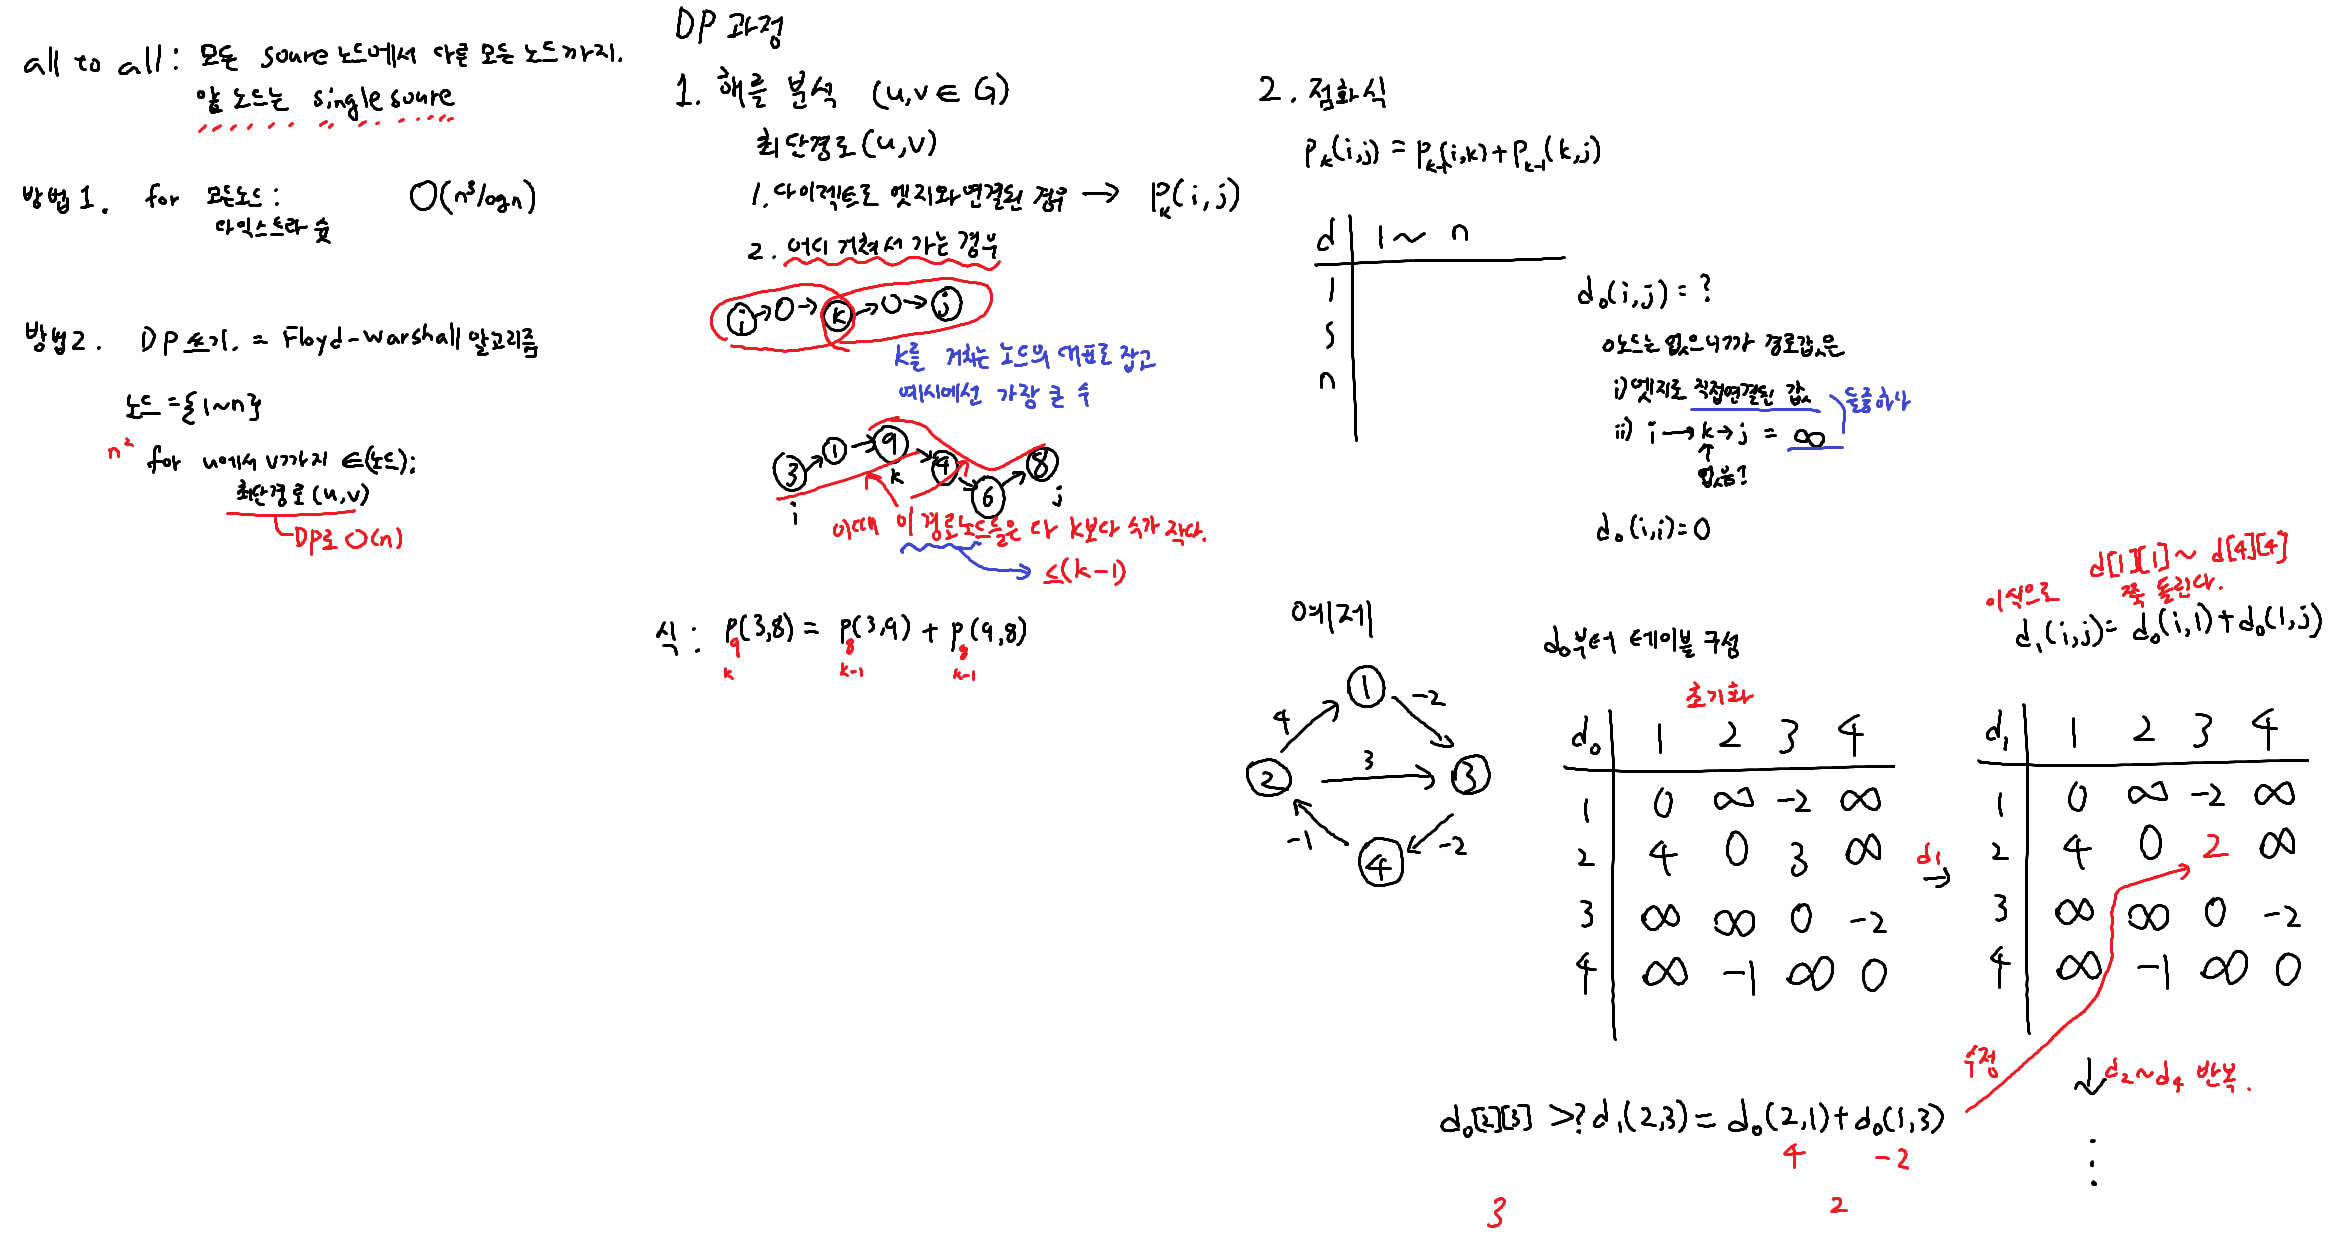 all to all : 모든 soure 노드에서 다른 모든 노드까지.
앞 노드는 single soure
방법 1. for 모든노드 : O(n³logn)
다익스트라 슛
방법 2. DP 쓰기. = Floyd-Warshall 알고리즘
노드 = {1~n}
n²
for u에서 v까지 ∈(노드);
최단경로(u,v)
DP로 O(n)
DP 과정
1. 해를 분석 (u,v ∈ G)
최단경로(u,v)
1. 다이렉트로 엣지와 연결된 경우 → Pₖ(i,j)
2. 어디 거쳐서 가는 경우
i → 0 → k → 0 → j
k를 거치는 노드의 대표로 잡고
예시에선 가장 큰 수
3 → 1 → 9 → 4 → 6 → 8
i k j
이때 이 경로노드들은 다 k보다 수가 작다.
≤(k-1)
식 : P(3,8) = P(3,9) + P(9,8)
9 8 8
k k-1 k-1
2. 점화식
Pₖ(i,j) = Pₖ₋₁(i,k) + Pₖ₋₁(k,j)
d 1 ~ n
1
S
n
d₀(i,j) = ?
0노드는 없으니까 경로값은
i) 엣지로 직접연결된 값
둘중하나
ii) i → k → j = ∞
↑
없음?
d₀(i,i) = 0
예제
1
4 -2
2 3 3
-1 -2
4
d₀부터 테이블 구성
초기화
d₀ 1 2 3 4
1 0 ∞ -2 ∞
2 4 0 3 ∞
3 ∞ ∞ 0 -2
4 ∞ -1 ∞ 0
d₁
→
d[1][1] ~ d[4][4]
이식으로 쭉 돌린다.
d₁(i,j) = d₀(i,1) + d₀(1,j)
d₁ 1 2 3 4
1 0 ∞ -2 ∞
2 4 0 2 ∞
3 ∞ ∞ 0 -2
4 ∞ -1 ∞ 0
수정
↓ d₂~d₄ 반복.
⋮
d₀[2][3] >? d₁(2,3) = d₀(2,1) + d₀(1,3)
4 -2
3 2